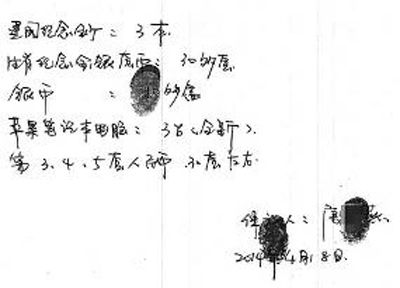 建国纪念钞： 3本.
纪念金银套币：30多套.
银币 ： 多套
苹果笔记本电脑：3台(全新).
第3.4.5套人民币 30套左右.
人：
2014年4月18日.